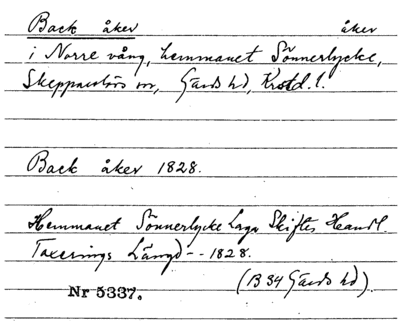 Back åker åker
i Norre vång, hemmanet Sönnerlycke,
Skepparslövs sn, Gärds hd, Krstd. l.
Back åker 1828.
Hemmanet Sönnerlycke Laga Skiftes Handl.
Taxerings Längd -- 1828.
(B 34 Gärds hd).
Nr 5337.